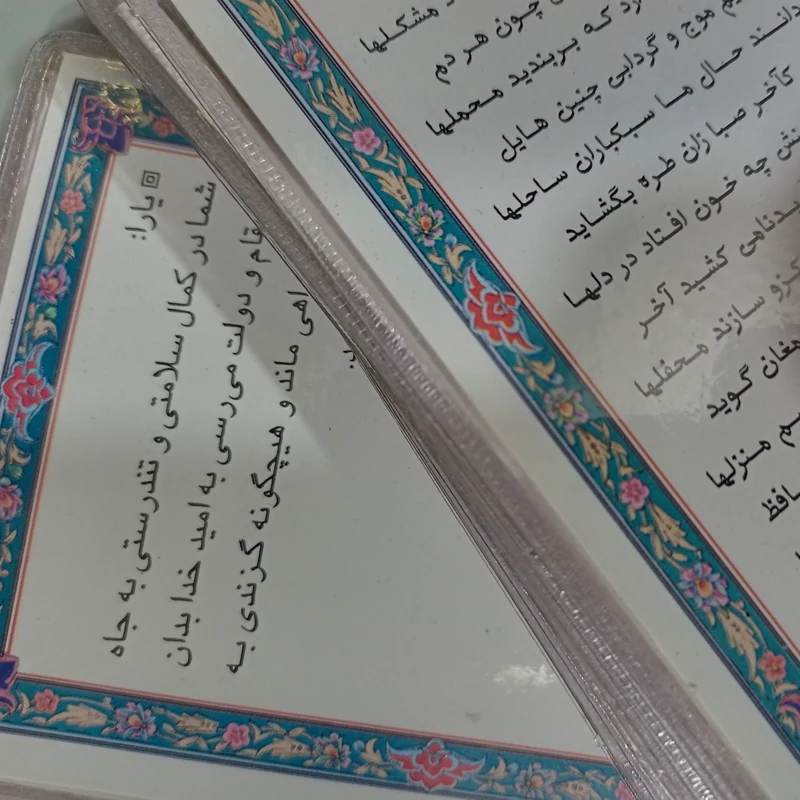 مشکلها
چون هر دم
که بربندید محملها
موج و گردابی چنین هایل
دانند حال ما سبکباران ساحلها
کآخر صبا زان طره بگشاید
چه خون افتاد در دلها
بدنامی کشید آخر
کزو سازند محفلها
مغان گوید
منزلها
حافظ
یارا:
شما در کمال سلامتی و تندرستی به جاه
قام و دولت می‌رسی به امید خدا بدان
اهی ماند و هیچگونه گزندی به